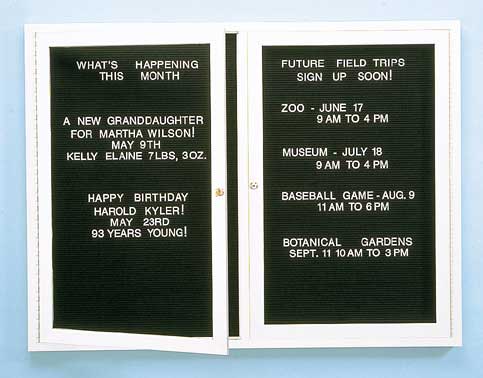 WHAT'S HAPPENING
THIS MONTH
A NEW GRANDDAUGHTER
FOR MARTHA WILSON!
MAY 9TH
KELLY ELAINE 7LBS, 3OZ.
HAPPY BIRTHDAY
HAROLD KYLER!
MAY 23RD
93 YEARS YOUNG!
FUTURE FIELD TRIPS
SIGN UP SOON!
ZOO - JUNE 17
9 AM TO 4 PM
MUSEUM - JULY 18
9 AM TO 4 PM
BASEBALL GAME - AUG. 9
11 AM TO 6 PM
BOTANICAL GARDENS
SEPT. 11 10 AM TO 3 PM